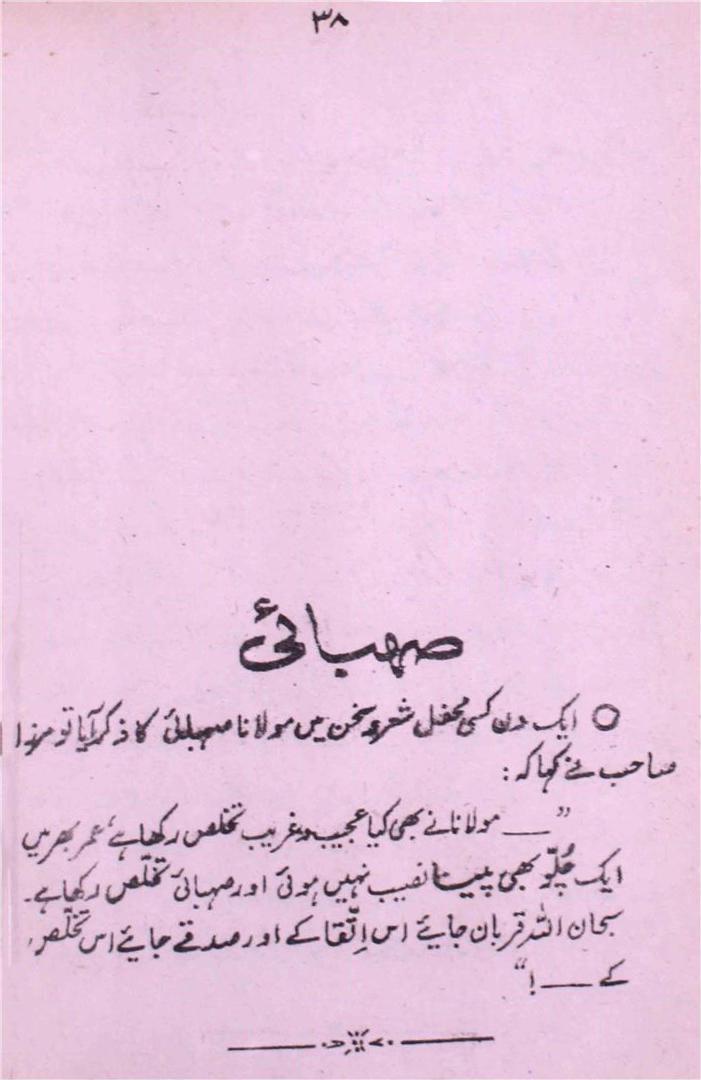 ۳۸
صہبائی
○ ایک دن کسی محفل شعر و سخن میں مولانا صہبائی کا ذکر آیا تو مرزا
صاحب نے کہا کہ :
”— مولانا نے بھی کیا عجیب و غریب تخلص رکھا ہے، عمر بھر میں
ایک چُلّو بھی پینا نصیب نہیں ہوئی اور صہبائی تخلّص رکھا ہے۔
سبحان اللہ قربان جائیے اس اِتّقا کے اور صدقے جائیے اس تخلّص
کے — !“